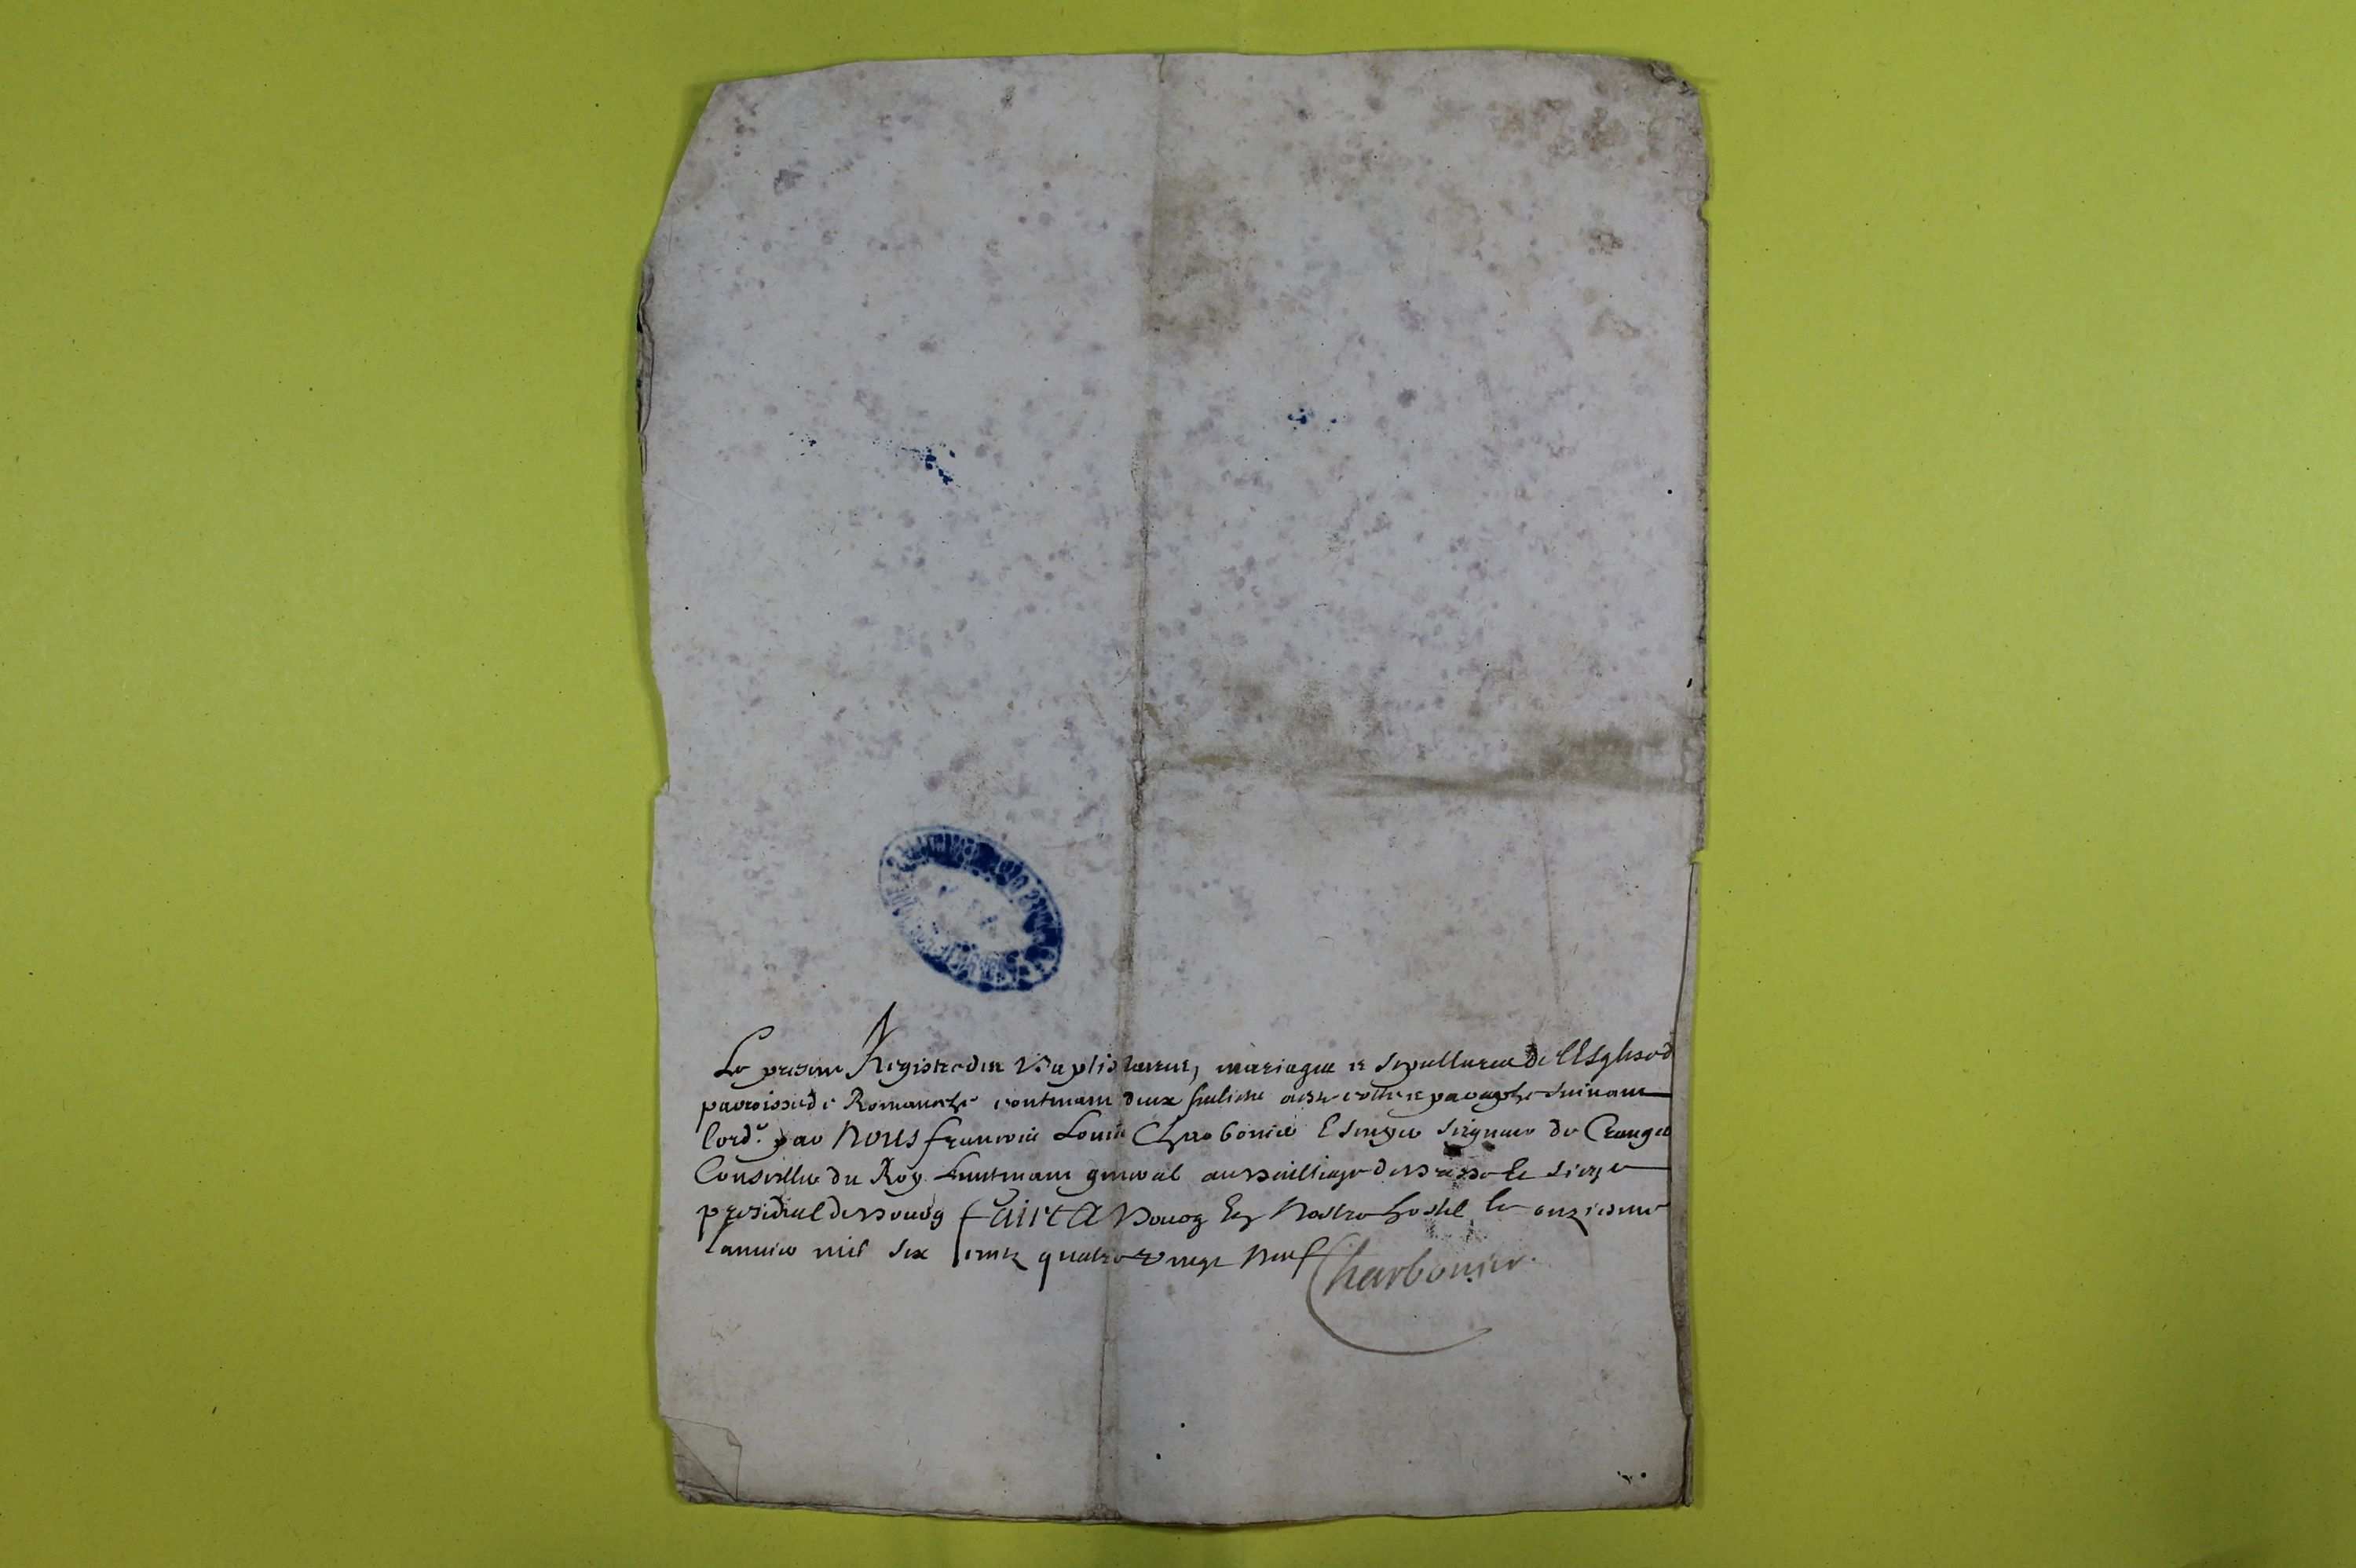 Le present Registre des Baptistaires, mariages et sepultures de l'Esglise d
parroisse de Romaneche contenant deux feulietz a esté cotté et paraphe suivant
lord.e par Nous francois Louis Charbonier Escuyer seigneur de Crangeat
Conseiller du Roy Lieutenant general au Bailliage de Bresse et siege
presidial de Bourg faict a Bourg En Nostre hostel le onzieme
lannée mil six centz quatre vingt Neuf
Charbonier